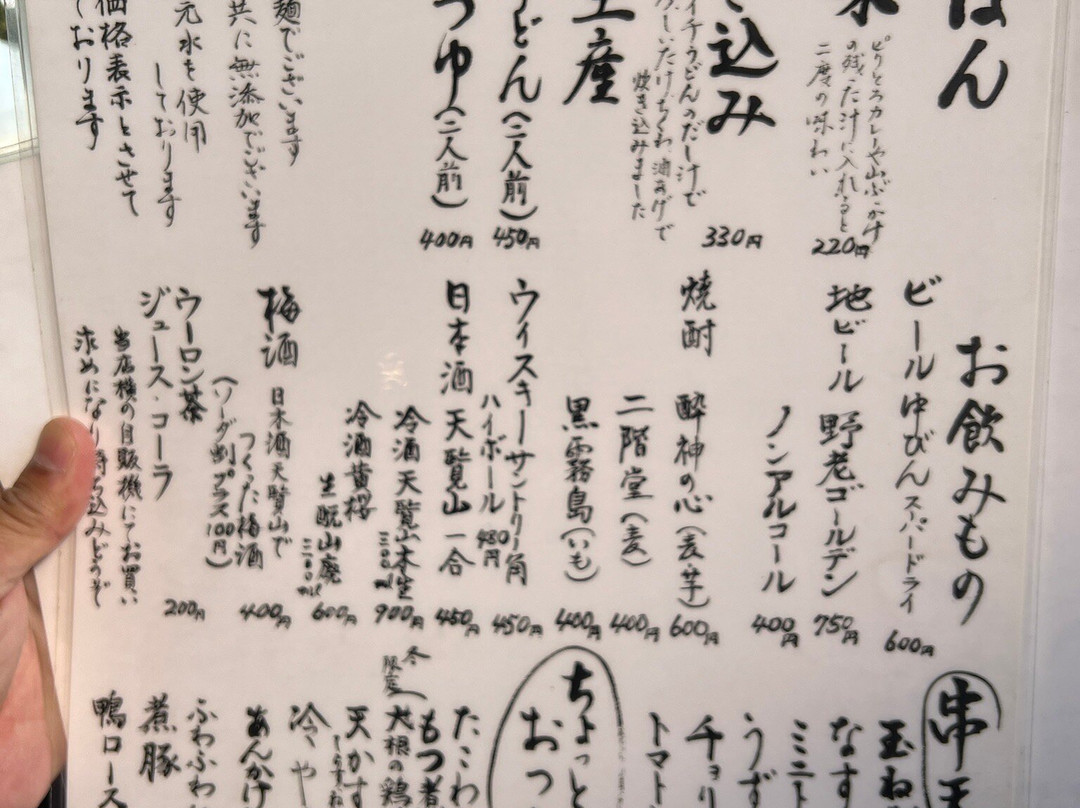 はん
ピリとろカレーや山ぶっかけ
の残った汁に入れると
二度の味わい
220円
込み
うどんのだし汁で
しいたけ、ちくわ、油あげで
炊き込みました
330円
土産
うどん(二人前)
450円
つゆ(二人前)
400円
麺でございます
共に無添加でございます
元水を使用
しております
価格表示とさせて
おります
お飲みもの
ビール中びん スーパードライ
600円
地ビール 野老ゴールデン
750円
ノンアルコール
400円
焼酎 酔神の心(麦・芋)
600円
二階堂(麦)
400円
黒霧島(いも)
400円
ウイスキー サントリー角
450円
ハイボール 480円
日本酒 天覧山 一合
450円
冷酒 天覧山本生
300ml
900円
冷酒 黄桜
生酛山廃
300ml
600円
梅酒 日本酒天覧山で
つくった梅酒
400円
(ソーダ割プラス100円)
ウーロン茶
ジュース・コーラ
200円
当店横の自販機にてお買い
求めになりお持ち込みどうぞ
串
玉ね
なす
ミニト
うず
チョリ
トマト
ちょっと
おつ
たこわ
もつ煮
大根の鶏
冬
限定
天かす
冷や
あんかけ
ふわふわ
煮豚
鴨ロース